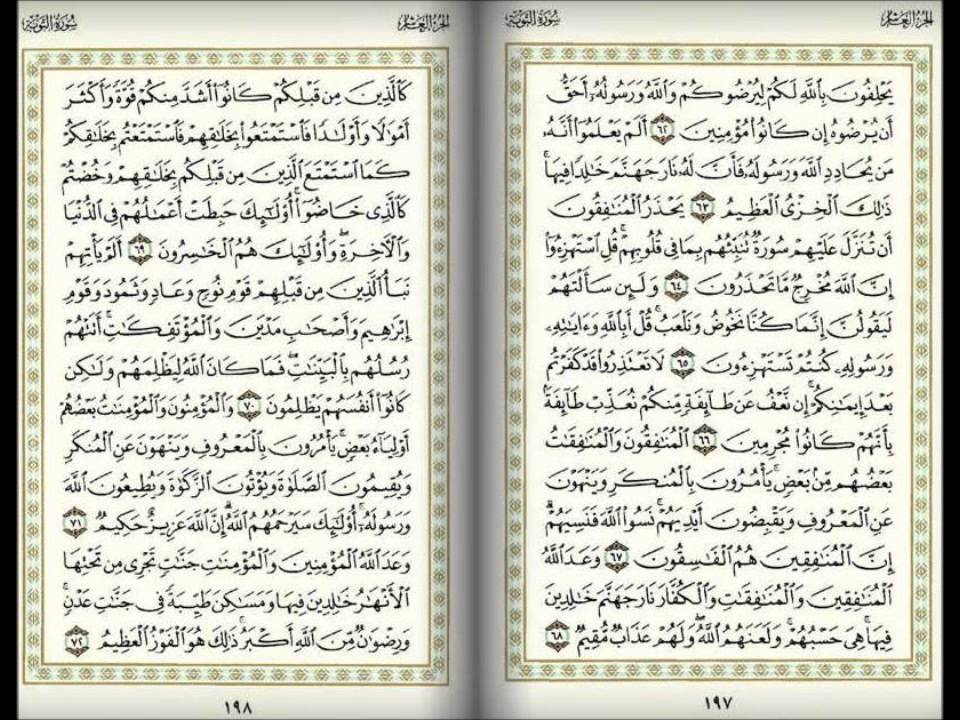 الجزء العاشر
سورة التوبة
يَحْلِفُونَ بِٱللَّهِ لَكُمْ لِيُرْضُوكُمْ وَٱللَّهُ وَرَسُولُهُۥٓ أَحَقُّ
أَن يُرْضُوهُ إِن كَانُوا۟ مُؤْمِنِينَ ٦٢ أَلَمْ يَعْلَمُوٓا۟ أَنَّهُۥ
مَن يُحَادِدِ ٱللَّهَ وَرَسُولَهُۥ فَأَنَّ لَهُۥ نَارَ جَهَنَّمَ خَٰلِدًا فِيهَا ۚ
ذَٰلِكَ ٱلْخِزْىُ ٱلْعَظِيمُ ٦٣ يَحْذَرُ ٱلْمُنَٰفِقُونَ
أَن تُنَزَّلَ عَلَيْهِمْ سُورَةٌ تُنَبِّئُهُم بِمَا فِى قُلُوبِهِمْ ۚ قُلِ ٱسْتَهْزِءُوٓا۟
إِنَّ ٱللَّهَ مُخْرِجٌ مَّا تَحْذَرُونَ ٦٤ وَلَئِن سَأَلْتَهُمْ
لَيَقُولُنَّ إِنَّمَا كُنَّا نَخُوضُ وَنَلْعَبُ ۚ قُلْ أَبِٱللَّهِ وَءَايَٰتِهِۦ
وَرَسُولِهِۦ كُنتُمْ تَسْتَهْزِءُونَ ٦٥ لَا تَعْتَذِرُوا۟ قَدْ كَفَرْتُم
بَعْدَ إِيمَٰنِكُمْ ۚ إِن نَّعْفُ عَن طَآئِفَةٍ مِّنكُمْ نُعَذِّبْ طَآئِفَةًۢ
بِأَنَّهُمْ كَانُوا۟ مُجْرِمِينَ ٦٦ ٱلْمُنَٰفِقُونَ وَٱلْمُنَٰفِقَٰتُ
بَعْضُهُم مِّنۢ بَعْضٍ ۚ يَأْمُرُونَ بِٱلْمُنكَرِ وَيَنْهَوْنَ
عَنِ ٱلْمَعْرُوفِ وَيَقْبِضُونَ أَيْدِيَهُمْ ۚ نَسُوا۟ ٱللَّهَ فَنَسِيَهُمْ ۗ
إِنَّ ٱلْمُنَٰفِقِينَ هُمُ ٱلْفَٰسِقُونَ ٦٧ وَعَدَ ٱللَّهُ
ٱلْمُنَٰفِقِينَ وَٱلْمُنَٰفِقَٰتِ وَٱلْكُفَّارَ نَارَ جَهَنَّمَ خَٰلِدِينَ
فِيهَا ۚ هِىَ حَسْبُهُمْ ۚ وَلَعَنَهُمُ ٱللَّهُ ۖ وَلَهُمْ عَذَابٌ مُّقِيمٌ ٦٨
١٩٧
الجزء العاشر
سورة التوبة
كَٱلَّذِينَ مِن قَبْلِكُمْ كَانُوٓا۟ أَشَدَّ مِنكُمْ قُوَّةً وَأَكْثَرَ
أَمْوَٰلًا وَأَوْلَٰدًا فَٱسْتَمْتَعُوا۟ بِخَلَٰقِهِمْ فَٱسْتَمْتَعْتُم بِخَلَٰقِكُمْ
كَمَا ٱسْتَمْتَعَ ٱلَّذِينَ مِن قَبْلِكُم بِخَلَٰقِهِمْ وَخُضْتُمْ
كَٱلَّذِى خَاضُوٓا۟ ۚ أُو۟لَٰٓئِكَ حَبِطَتْ أَعْمَٰلُهُمْ فِى ٱلدُّنْيَا
وَٱلْءَاخِرَةِ ۖ وَأُو۟لَٰٓئِكَ هُمُ ٱلْخَٰسِرُونَ ٦٩ أَلَمْ يَأْتِهِمْ
نَبَأُ ٱلَّذِينَ مِن قَبْلِهِمْ قَوْمِ نُوحٍ وَعَادٍ وَثَمُودَ وَقَوْمِ
إِبْرَٰهِيمَ وَأَصْحَٰبِ مَدْيَنَ وَٱلْمُؤْتَفِكَٰتِ ۚ أَتَتْهُمْ
رُسُلُهُم بِٱلْبَيِّنَٰتِ ۖ فَمَا كَانَ ٱللَّهُ لِيَظْلِمَهُمْ وَلَٰكِن
كَانُوٓا۟ أَنفُسَهُمْ يَظْلِمُونَ ٧٠ وَٱلْمُؤْمِنُونَ وَٱلْمُؤْمِنَٰتُ بَعْضُهُمْ
أَوْلِيَآءُ بَعْضٍ ۚ يَأْمُرُونَ بِٱلْمَعْرُوفِ وَيَنْهَوْنَ عَنِ ٱلْمُنكَرِ
وَيُقِيمُونَ ٱلصَّلَوٰةَ وَيُؤْتُونَ ٱلزَّكَوٰةَ وَيُطِيعُونَ ٱللَّهَ
وَرَسُولَهُۥٓ ۚ أُو۟لَٰٓئِكَ سَيَرْحَمُهُمُ ٱللَّهُ ۗ إِنَّ ٱللَّهَ عَزِيزٌ حَكِيمٌ ٧١
وَعَدَ ٱللَّهُ ٱلْمُؤْمِنِينَ وَٱلْمُؤْمِنَٰتِ جَنَّٰتٍ تَجْرِى مِن تَحْتِهَا
ٱلْأَنْهَٰرُ خَٰلِدِينَ فِيهَا وَمَسَٰكِنَ طَيِّبَةً فِى جَنَّٰتِ عَدْنٍ ۚ
وَرِضْوَٰنٌ مِّنَ ٱللَّهِ أَكْبَرُ ۚ ذَٰلِكَ هُوَ ٱلْفَوْزُ ٱلْعَظِيمُ ٧٢
١٩٨